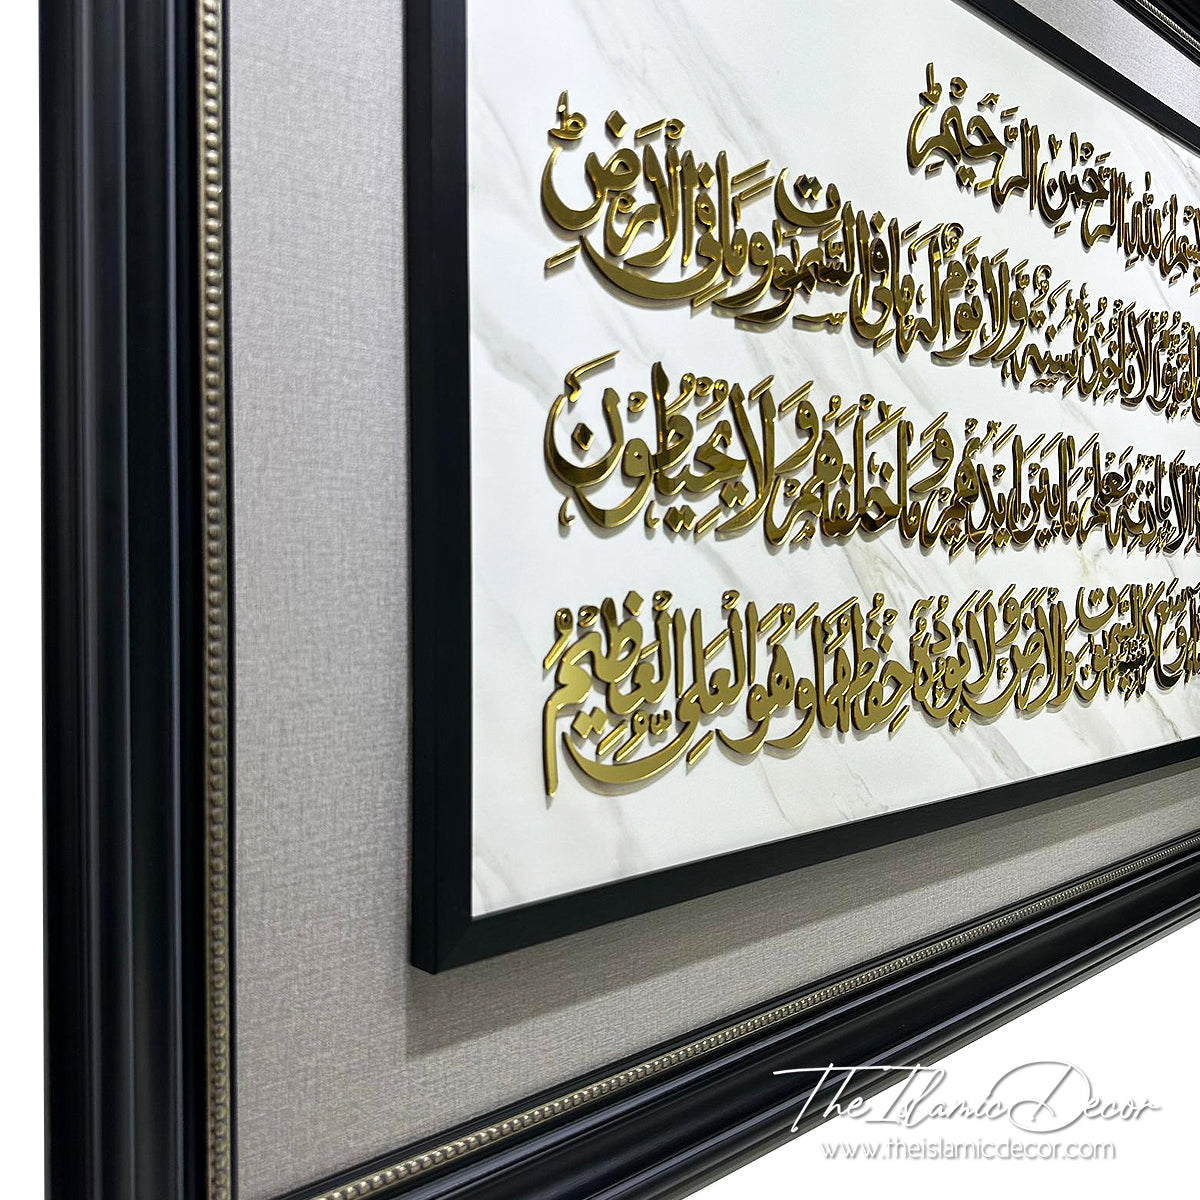 بِسْمِ اللهِ الرَّحْمٰنِ الرَّحِيْمِ
الْقَيُّوْمُ لَا تَأْخُذُهٗ سِنَةٌ وَّلَا نَوْمٌ لَهٗ مَا فِى السَّمٰوٰتِ وَمَا فِى الْاَرْضِ
اِلَّا بِاِذْنِهٖ يَعْلَمُ مَا بَيْنَ اَيْدِيْهِمْ وَمَا خَلْفَهُمْ وَلَا يُحِيْطُوْنَ
وَسِعَ كُرْسِيُّهُ السَّمٰوٰتِ وَالْاَرْضَ وَلَا يَئُوْدُهٗ حِفْظُهُمَا وَهُوَ الْعَلِىُّ الْعَظِيْمُ
The Islamic Decor
www.theislamicdecor.com